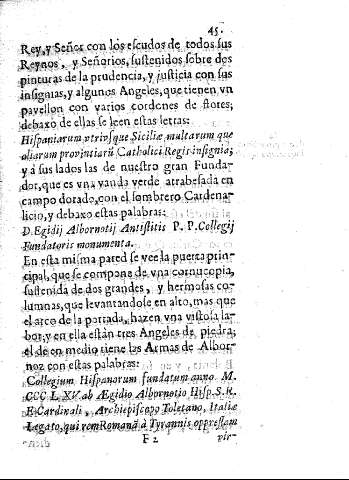 45.
Rey, y Señor con los escudos de todos sus
Reynos, y Señorios, sustenidos sobre dos
pinturas de la prudencia, y justicia con sus
insignias, y algunos Angeles, que tienen vn
pavellon con varios cordones de flores;
debaxo de ellas se leen estas letras:
Hispaniarum vtriusque Siciliæ multarum que
aliarum provintiarũ Catholici Regis insignia;
y á sus lados las de nuestro gran Funda-
dor, que es vna vanda verde atrabesada en
campo dorado, con el sombrero Cardena-
licio, y debaxo estas palabras:
D. Egidij Albornotij Antistitis P. P. Collegij
Fundatoris monumenta.
En esta misma pared se vee la puerta prin-
cipal, que se compone de vna cornucopia,
sustenida de dos grandes, y hermosas co-
lumnas, que levantandose en alto, mas que
el arco de la portada, hazen vna vistosa la-
bor, y en ella están tres Angeles de piedra;
el de en medio tiene las Armas de Albor-
noz con estas palabras:
Collegium Hispanorum fundatum anno M.
CCC LXV. ab Ægidio Albornotio Hisp. S. R.
E Cardinali, Archiepiscopo Toletano, Italiæ
Legato, qui rem Romanã à Tyrannis oppressam
F 2 vir-